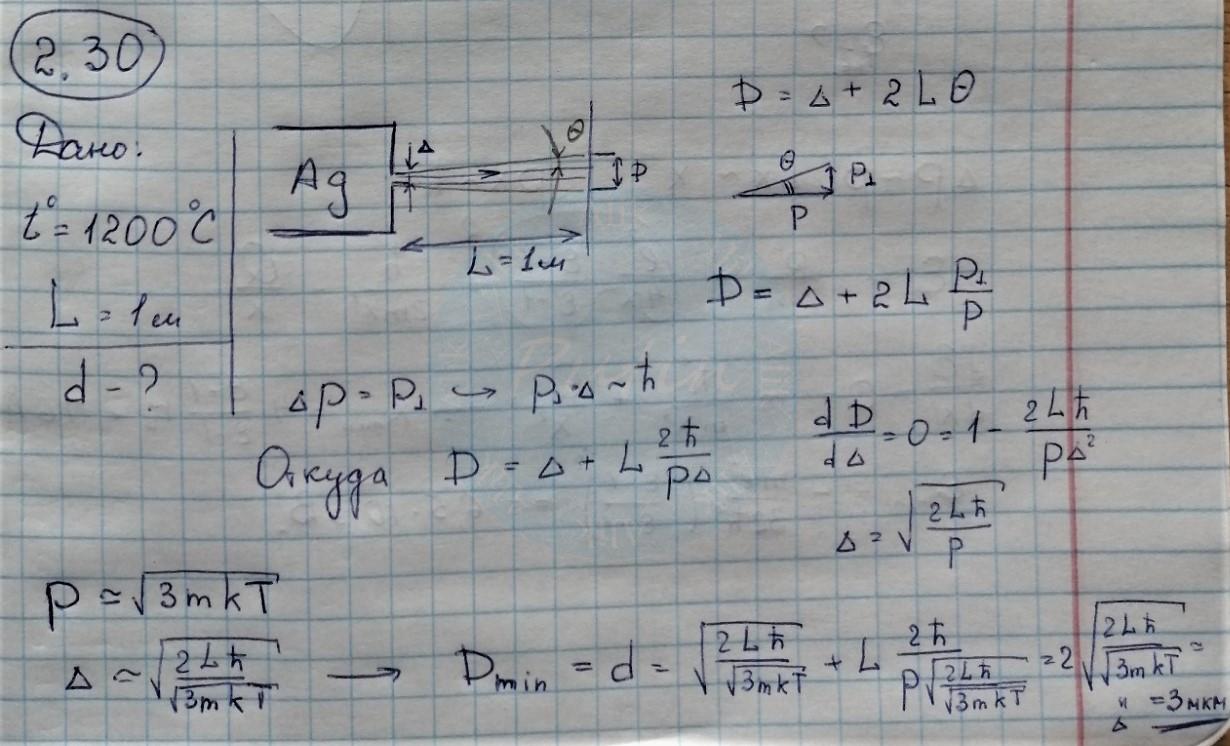 2.30
Дано:
t° = 1200°C
L = 1м
d - ?
Ag
Δ
θ
D
L = 1м
D = Δ + 2Lθ
θ
P⊥
P
D = Δ + 2L P⊥/P
Δp = P⊥ → P⊥·Δ ~ ħ
Откуда D = Δ + L 2ħ/pΔ
dD/dΔ = 0 = 1 - 2Lħ/pΔ²
Δ = √(2Lħ/p)
p ≃ √(3mkT)
Δ ≃ √(2Lħ/√(3mkT)) → Dmin = d = √(2Lħ/√(3mkT)) + L 2ħ/(p√(2Lħ/√(3mkT))) = 2√(2Lħ/√(3mkT)) =
= 3мкм